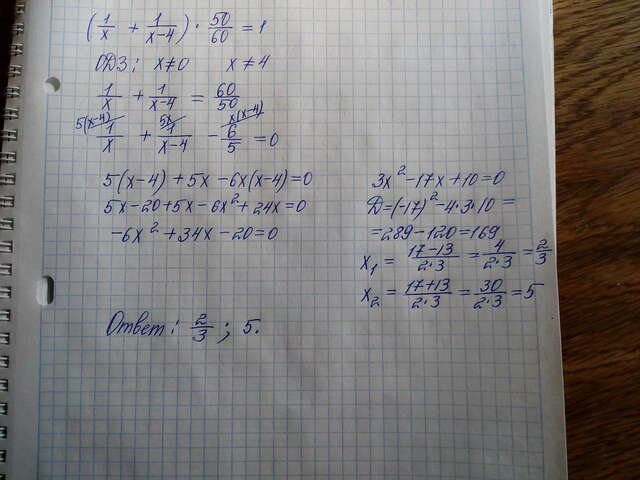 (1/x + 1/(x-4)) · 50/60 = 1
ОДЗ: x≠0 x≠4
1/x + 1/(x-4) = 60/50
5(x-4) 5x x(x-4)
1/x + 1/(x-4) - 6/5 = 0
5(x-4) + 5x - 6x(x-4) = 0
5x - 20 + 5x - 6x² + 24x = 0
-6x² + 34x - 20 = 0
3x² - 17x + 10 = 0
D = (-17)² - 4·3·10 =
= 289 - 120 = 169
x₁ = (17-13)/(2·3) = 4/(2·3) = 2/3
x₂ = (17+13)/(2·3) = 30/(2·3) = 5
Ответ: 2/3 ; 5.